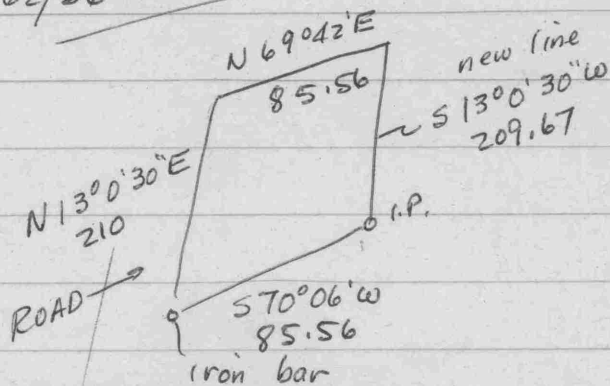 N 69°42'E
85.56
new line
S 13°0'30"W
209.67
N 13°0'30"E
210
I.P.
ROAD
S 70°06'W
85.56
iron bar